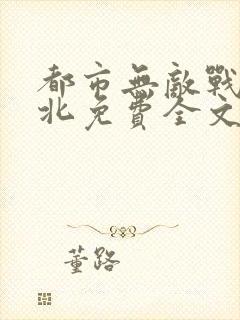 都市無敵戰
北免費全文
董路